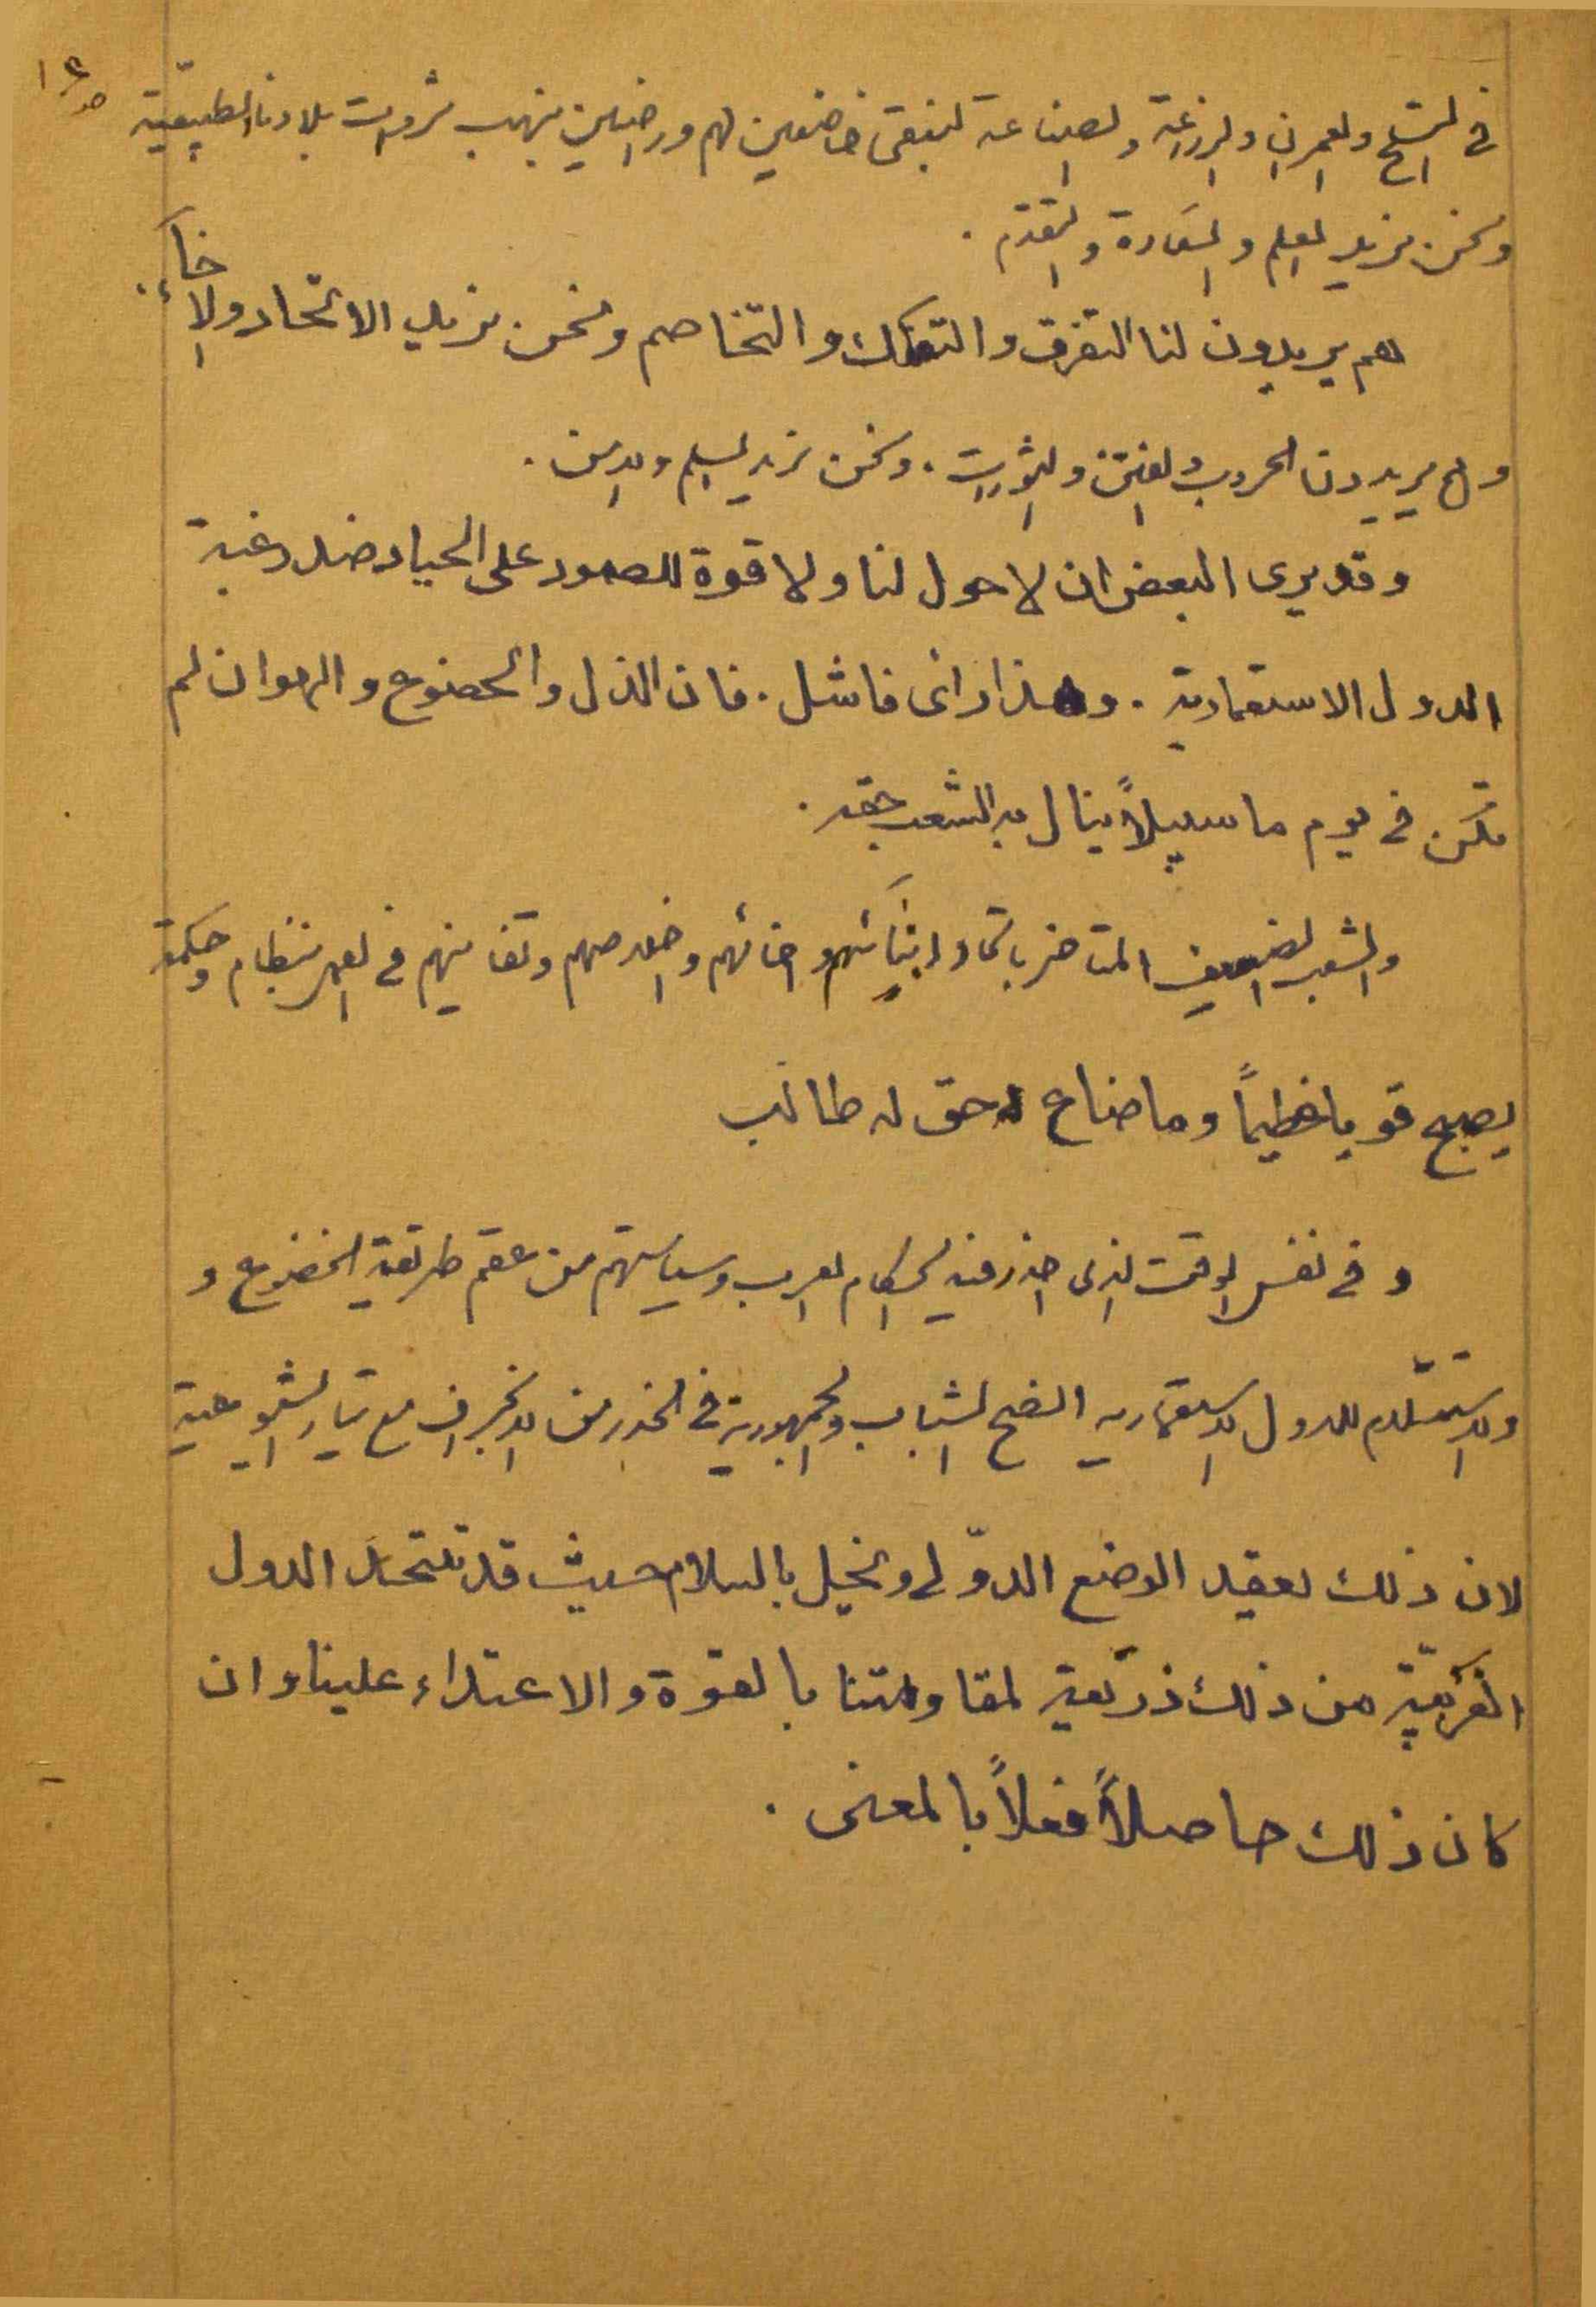 في التسلح والعمران والزراعة والصناعة لنبقى خاضعين لهم وراضين بنهب ثروات بلادنا الطبيعية
ونحن نريد العلم والسعادة والتقدم .
هم يريدون لنا التفرق والتفكك والتخاصم ونحن نريد الاتحاد والاخاء .
وهم يريدون الحروب والفتن والثورات . ونحن نريد السلم والامن .
وقد يرى البعض ان لا حول لنا ولا قوة للصمود على الحياد ضد رغبة
الدول الاستعمارية . وهذا رأى فاشل . فان الذل والخضوع والهوان لم
تكن في يوم ما سبيلاً ينال به الشعب حقه .
والشعب الضعيف المتأخر باتحاد ابنائهم واخائهم واخلاصهم وتفانيهم في العمل بنظام وحكمة
يصبح قويا عظيماً وما ضاع حق له طالب
وفي نفس الوقت الذى احذر فيه الحكام العرب وسياستهم من عقم طريقة الخضوع و
والاستسلام للدول الاستعماريه انصح الشباب والجمهورية في الحذر من الانجراف مع تيار الشيوعية
لان ذلك يعقد الوضع الدولى ويخل بالسلام حيث قد تتخذ الدول
الغربية من ذلك ذريعة لمقاومتنا بالقوة والاعتداء علينا وان
كان ذلك حاصلاً فعلاً بالمعنى .